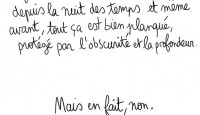 depuis la nuit des temps et même
avant, tout ça est bien planqué,
protégé par l'obscurité et la profondeur.
Mais en fait, non.